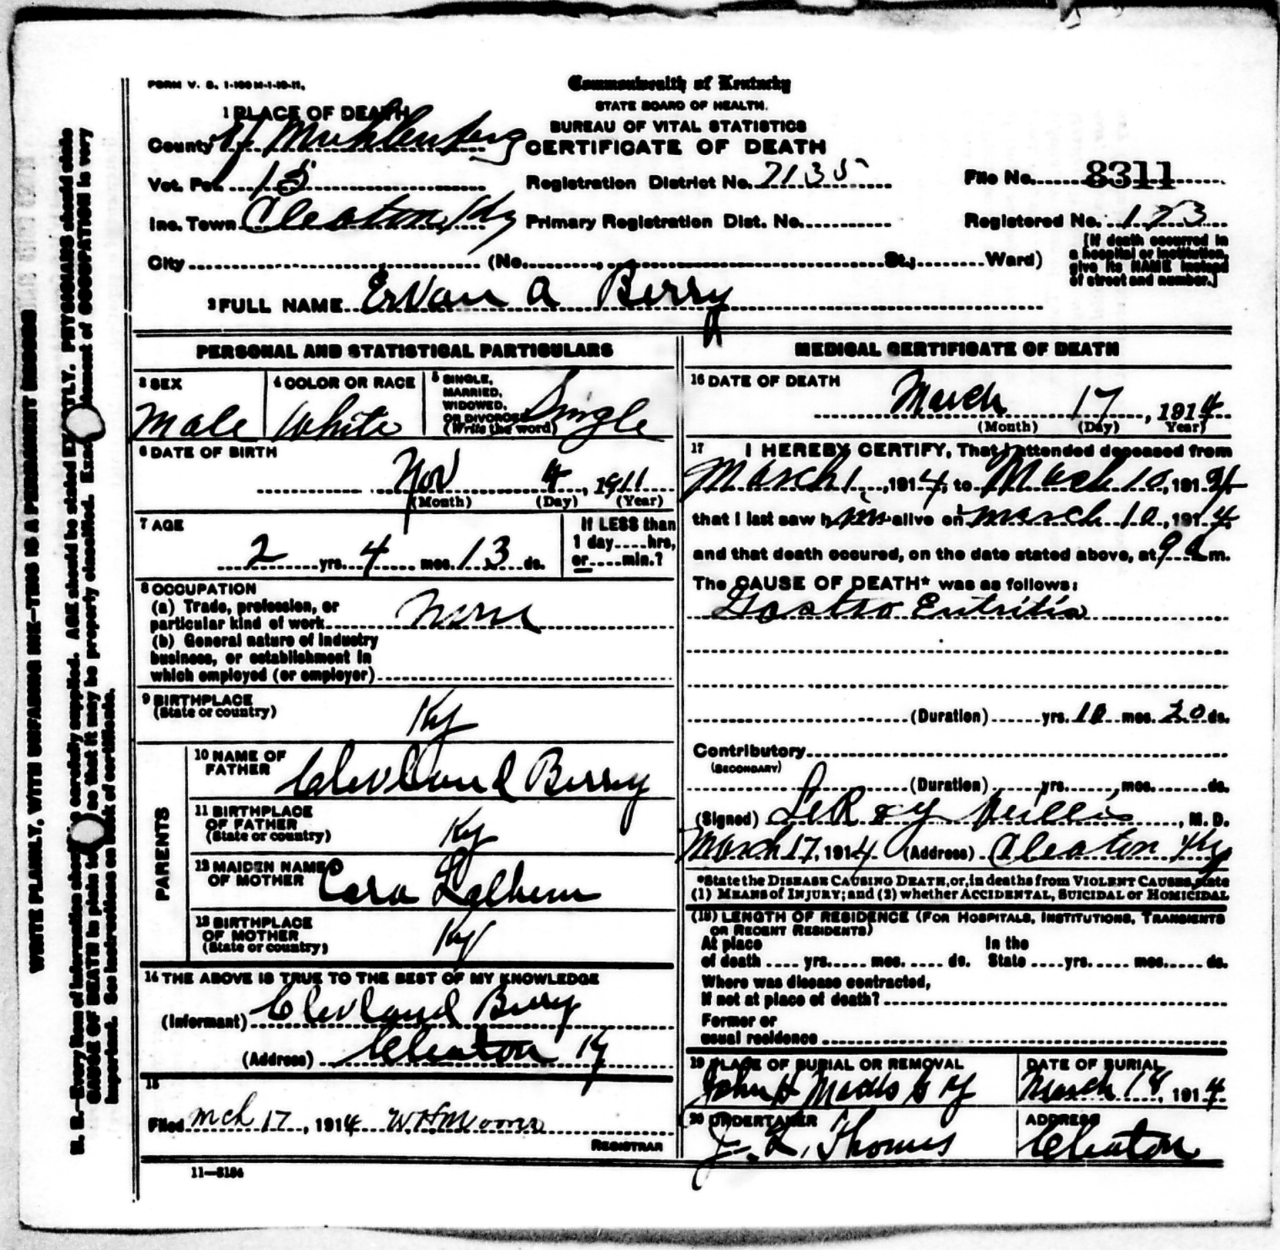 FORM V. S. 1-100 M-1-10-11.
Commonwealth of Kentucky
STATE BOARD OF HEALTH.
BUREAU OF VITAL STATISTICS
CERTIFICATE OF DEATH
1 PLACE OF DEATH
County of Muhlenberg
Vot. Pct. 15
Inc. Town Cleaton, Ky
City (No. , St.; Ward)
Registration District No. 7135
Primary Registration Dist. No.
File No. 8311
Registered No. 173
[If death occurred in
a hospital or institution,
give its NAME instead
of street and number.]
2 FULL NAME Ervan A Berry
PERSONAL AND STATISTICAL PARTICULARS
3 SEX
Male
4 COLOR OR RACE
White
5 SINGLE,
MARRIED,
WIDOWED,
OR DIVORCED
(Write the word)
Single
6 DATE OF BIRTH
Nov 4, 1911
(Month) (Day) (Year)
7 AGE
2 yrs. 4 mos. 13 ds.
If LESS than
1 day....hrs,
or....min.?
8 OCCUPATION
(a) Trade, profession, or
particular kind of work
(b) General nature of Industry
business, or establishment in
which employed (or employer)
9 BIRTHPLACE
(State or country)
Ky
PARENTS
10 NAME OF
FATHER
Clevland Berry
11 BIRTHPLACE
OF FATHER
(State or country)
Ky
12 MAIDEN NAME
OF MOTHER
13 BIRTHPLACE
OF MOTHER
(State or country)
Ky
14 THE ABOVE IS TRUE TO THE BEST OF MY KNOWLEDGE
(Informant) Clevland Berry
(Address) Cleaton Ky
15
Filed Mch 17, 1914 W H Moore
REGISTRAR
11—3184
MEDICAL CERTIFICATE OF DEATH
16 DATE OF DEATH
March 17, 1914
(Month) (Day) (Year)
17 I HEREBY CERTIFY, That I attended deceased from
March 1, 1914, to March 10, 1914
that I last saw him alive on March 10, 1914
and that death occured, on the date stated above, at 9 a m.
The CAUSE OF DEATH* was as follows:
Gastro Entritis
(Duration) yrs. 10 mos. 20 ds.
Contributory
(SECONDARY)
(Duration) yrs. mos. ds.
(Signed) LeRoy , M. D.
March 17, 1914 (Address) Cleaton Ky
*State the DISEASE CAUSING DEATH, or, in deaths from VIOLENT CAUSES, state
(1) MEANS of INJURY; and (2) whether ACCIDENTAL, SUICIDAL or HOMICIDAL
(18) LENGTH OF RESIDENCE (FOR HOSPITALS, INSTITUTIONS, TRANSIENTS
OR RECENT RESIDENTS)
At place In the
of death yrs. mos. ds. State yrs. mos. ds.
Where was disease contracted,
If not at place of death?
Former or
usual residence
19 PLACE OF BURIAL OR REMOVAL
John H
DATE OF BURIAL
March 18, 1914
20 UNDERTAKER
J. L. Thomas
ADDRESS
Cleaton
WRITE PLAINLY, WITH UNFADING INK—THIS IS A PERMANENT RECORD
N. B.—Every item of information should be carefully supplied. AGE should be stated EXACTLY. PHYSICIANS should state
CAUSE OF DEATH in plain so that it may be properly classified. Exact statement of OCCUPATION is very
important. See instructions on back of certificate.